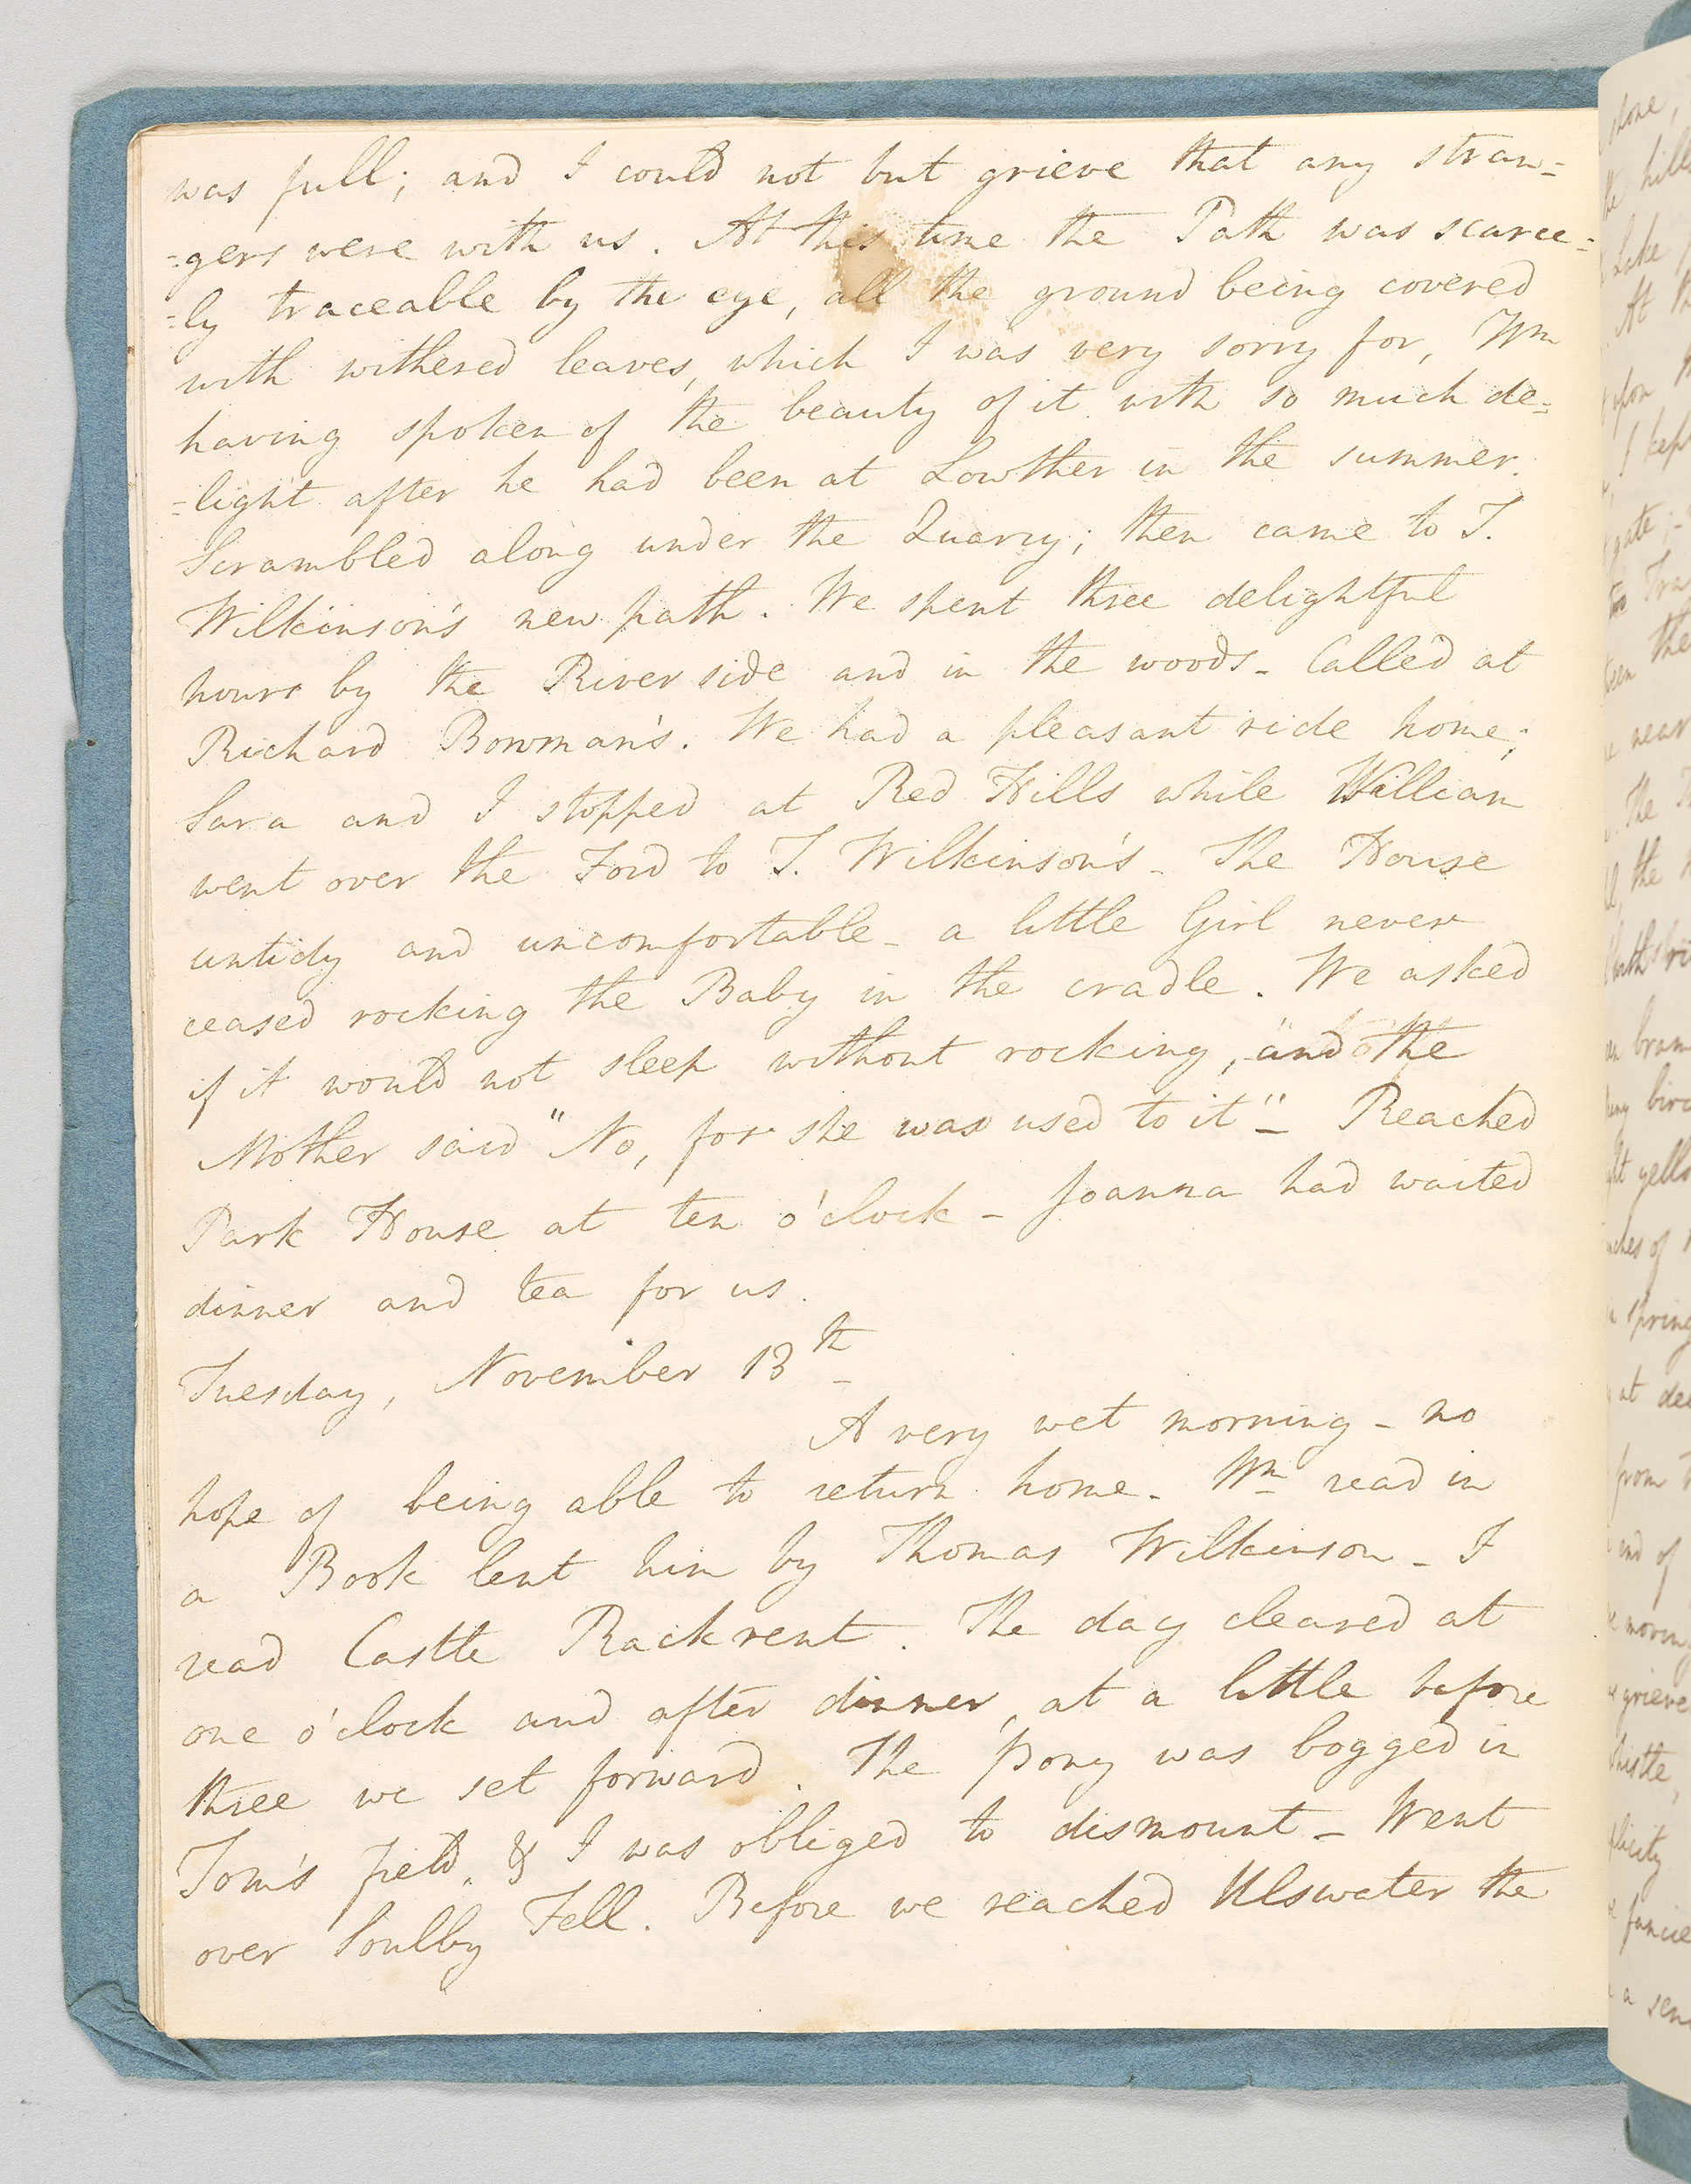 was full; and I could not but grieve that any stran=
=gers were with us. At this time the Path was scarce=
=ly traceable by the eye, all the ground being covered
with withered leaves, which I was very sorry for, Wm
having spoken of the beauty of it with so much de=
=light after he had been at Lowther in the summer.
Scrambled along under the Quarry; then came to T.
Wilkinson's new path. We spent three delightful
hours by the River side and in the woods - Called at
Richard Bowman's. We had a pleasant ride home;
Sara and I stopped at Red Hills while William
went over the Ford to T. Wilkinson's - The House
untidy and uncomfortable - a little Girl never
ceased rocking the Baby in the cradle. We asked
if it would not sleep without rocking, "and the
Mother said "No, for she was used to it" - Reached
Park House at ten o'clock - Joanna had waited
dinner and tea for us.
Tuesday, November 13th
A very wet morning - no
hope of being able to return home. Wm read in
a Book lent him by Thomas Wilkinson - I
read Castle Rackrent. The day cleared at
one o'clock and after dinner, at a little before
three we set forward. The pony was bogged in
Tom's field, & I was obliged to dismount - Went
over Soulby Fell. Before we reached Ulswater the
hills
Lake
At
upon
I kept
gate;
the
near
The
the
yello
of
spring
at
from
end of
grieve
a